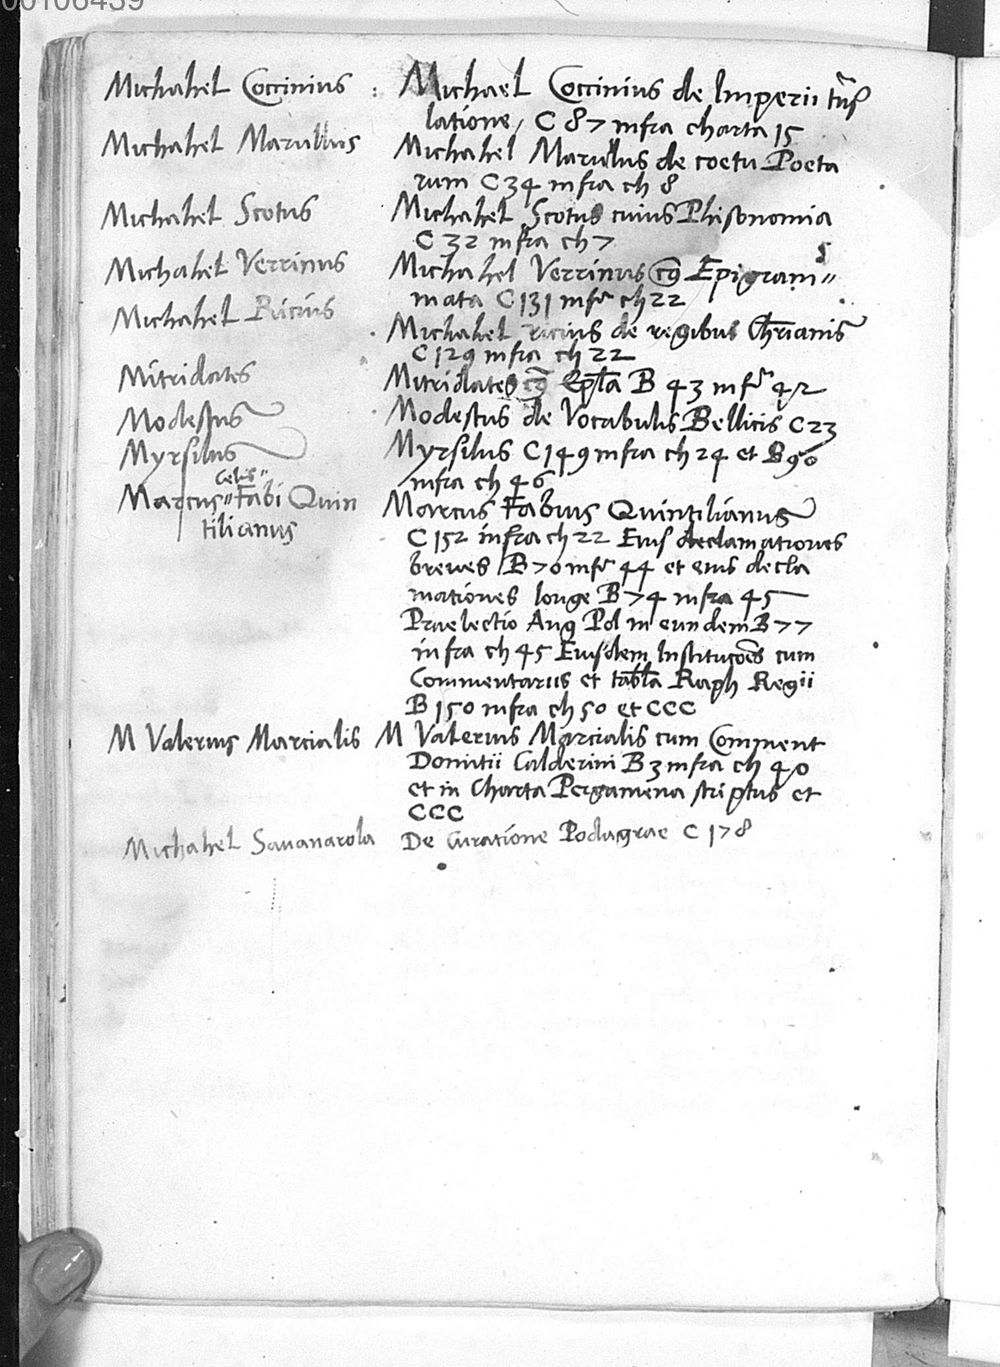 00106439
Michahel Coccinius : Michael Coccinius de Imperii trãs
latione, C 87 infra charta 15
Michahel Marullus Michahel Marullus de coetu Poeta
rum C 34 infra ch 8
Michahel Scotus Michahel Scotus cuius Phisonomia
C 32 infra ch 7
Michahel Verrinus Michahel Verrinus Epigram"
mata C 131 infr ch 22
Michahel Ricius Michahel ricius de regibus Chrianis
C 129 infra ch 22
Mitridates Mitridates Epla B 43 infr 42
Modestus Modestus de Vocabulis Bellicis C 23
Myrsilus Myrsilus C 149 infra ch 24 et B 90
infra ch 46
Marcus" Fabi Quin Marcus Fabius Quintilianus
tilianus C 152 infra ch 22 Eius declamationes
breues B 70 infr 44 et eius decla
mationes longe B 74 infra 45
Praelectio Aug Pol in eundem B 77
infra ch 45 Eiusdem Institucões cum
Commentariis et tabla Raph Regii
B 150 infra ch 50 et CCC
M Valerius Marcialis M Valerius Marcialis cum Comment
Domitii Calderini B 3 infra ch 40
et in Charta Pergamena scriptus et
CCC
Michahel Sauanarola De Curatione Podagrae C 178